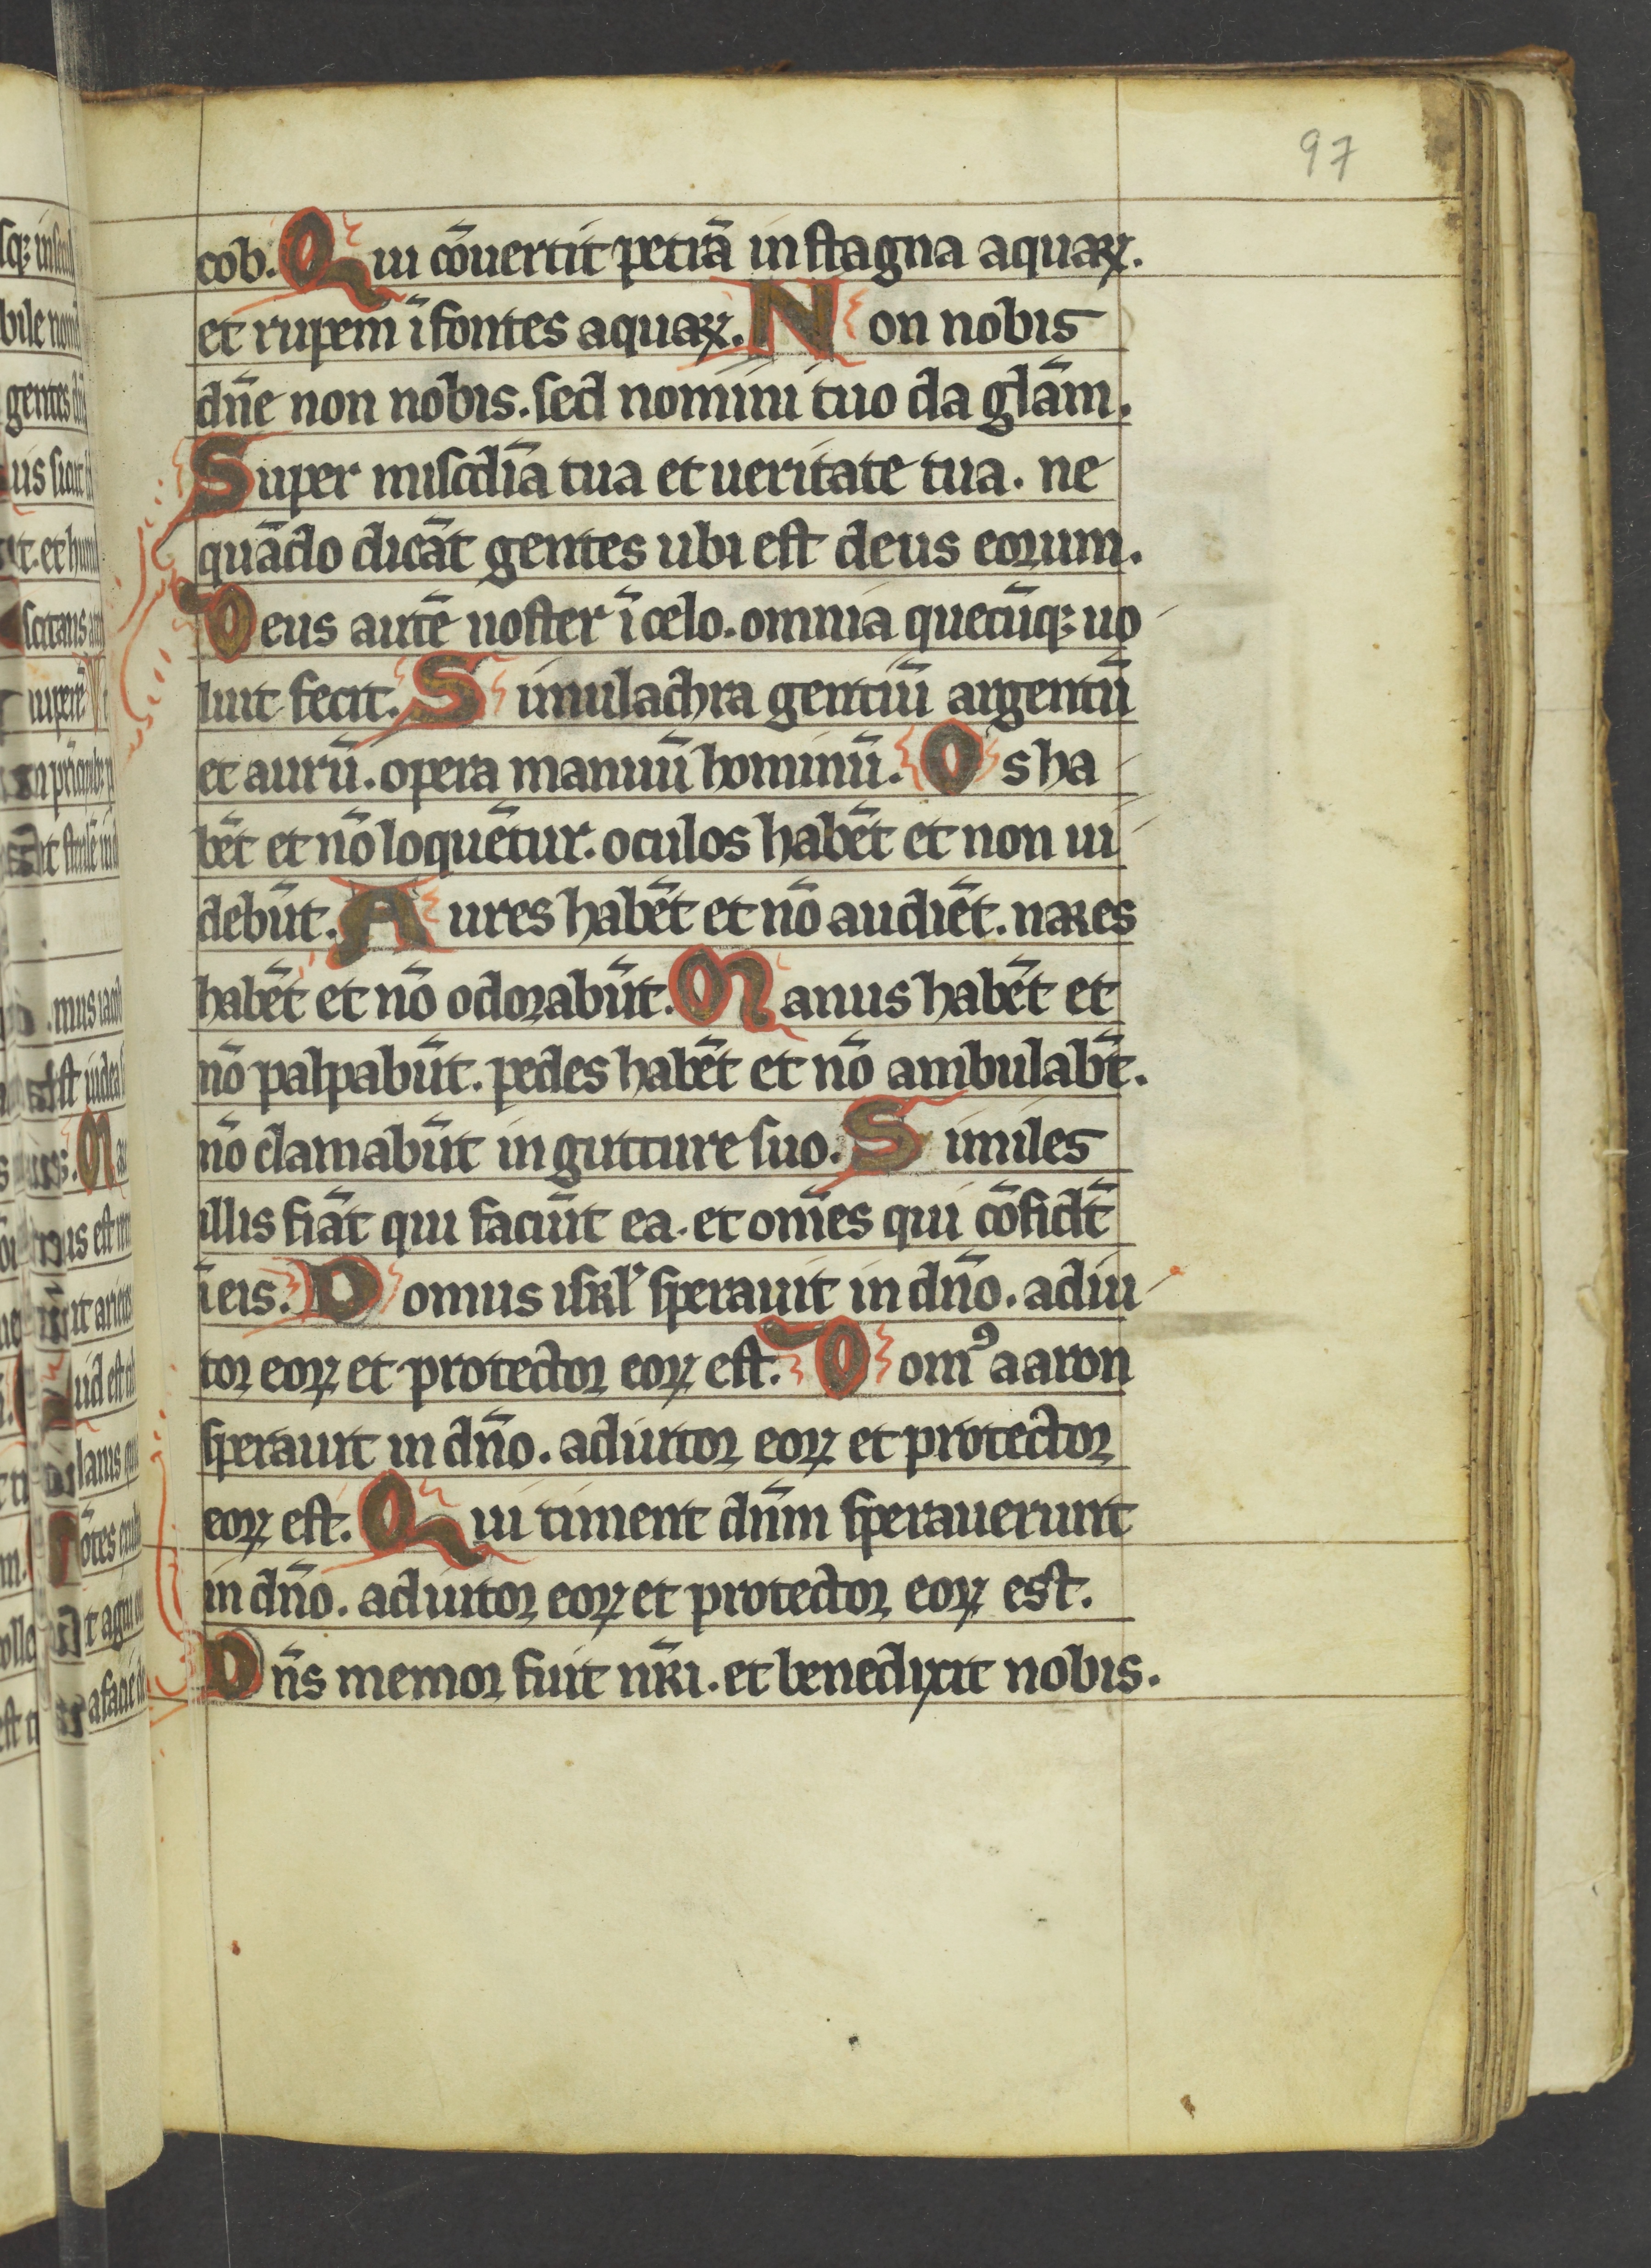 97
cob. Qui cōuertit petrā in stagna aquaꝝ.
et rupem ī fontes aquaꝝ. Non nobis
dn̄e non nobis. sed nomini tuo da glām.
Super miscdīa tua et ueritate tua. ne
quādo dicāt gentes ubi est deus eorum.
Deus autē noster ī celo. omnia quecūqꝫ uo
luit fecit. Simulachra gentiū argentū
et aurū. opera manuū hominū. Os ha
bēt et nō loquētur. oculos habēt et non ui
debūt. Aures habēt et nō audiēt. nares
habēt et nō odorabūt. Manus habēt et
nō palpabūt. pedes habēt et nō ambulabt̄.
nō clamabūt in gutture suo. Similes
illis fiāt qui faciūt ea. et om̄es qui cōfidt̄
ī eis. Domus isrl̓ sperauit in dn̄o. adiu
tor eoꝝ et protector eoꝝ est. Domꝰ aaron
sperauit in dn̄o. adiutor eoꝝ et protector
eoꝝ est. Qui timent dn̄m sperauerunt
in dn̄o. adiutor eoꝝ et protector eoꝝ est.
Dn̄s memor fuit nr̄i. et benedixit nobis.